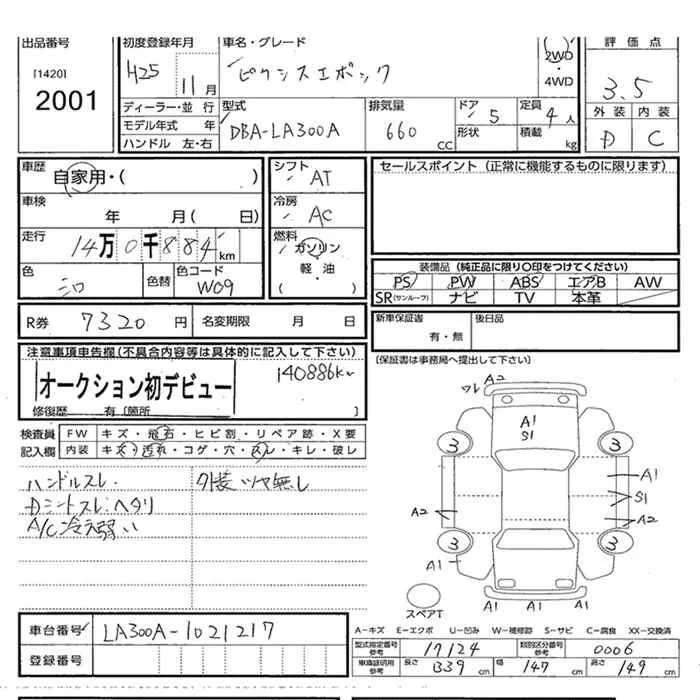 出品番号
[1420]
2001
初度登録年月
H25 11月
車名・グレード
ピクシスエポック
2WD
・
4WD
評価点
3.5
外装 内装
D C
ディーラー・並行
モデル年式 年
ハンドル 左・右
型式
DBA-LA300A
排気量
660 CC
ドア 5
形状
定員 4人
積載 kg
車歴
自家用・( )
車検
年 月( 日)
走行
14万0千884km
色
シロ
色替
色コード
W09
シフト
AT
冷房
AC
燃料
ガソリン
・
軽・油
( )
セールスポイント (正常に機能するものに限ります)
装備品 (純正品に限り○印をつけてください)
PS PW ABS エアB AW
SR(サンルーフ) ナビ TV 本革
R券 7320円 名変期限 月 日
新車保証書
有・無
後日品
(保証書は事務局へ提出して下さい)
注意事項申告欄(不具合内容等は具体的に記入して下さい)
オークション初デビュー
140886km
修復歴 有〔箇所 〕
検査員
記入欄
FW キズ・飛石・ヒビ割・リペア跡・X要
内装 キズ・汚れ・コゲ・穴・スレ・キレ・破レ
ハンドルスレ.
Dシートスレ.ヘタリ
A/C冷え弱い
外装ツヤ無し
ワレ A2
A1
S1
3
3
A1
S1
A2
A2
3
3
A1
A1 A1 A1
スペアT
車台番号 LA300A-1021217
登録番号
A-キズ E-エクボ U-凹み W-補修跡 S-サビ C-腐食 XX-交換済
型式指定番号
参考
17124
類別区分番号
参考
0006
車庫証明用
参考
長さ 339cm 幅 147cm 高さ 149cm